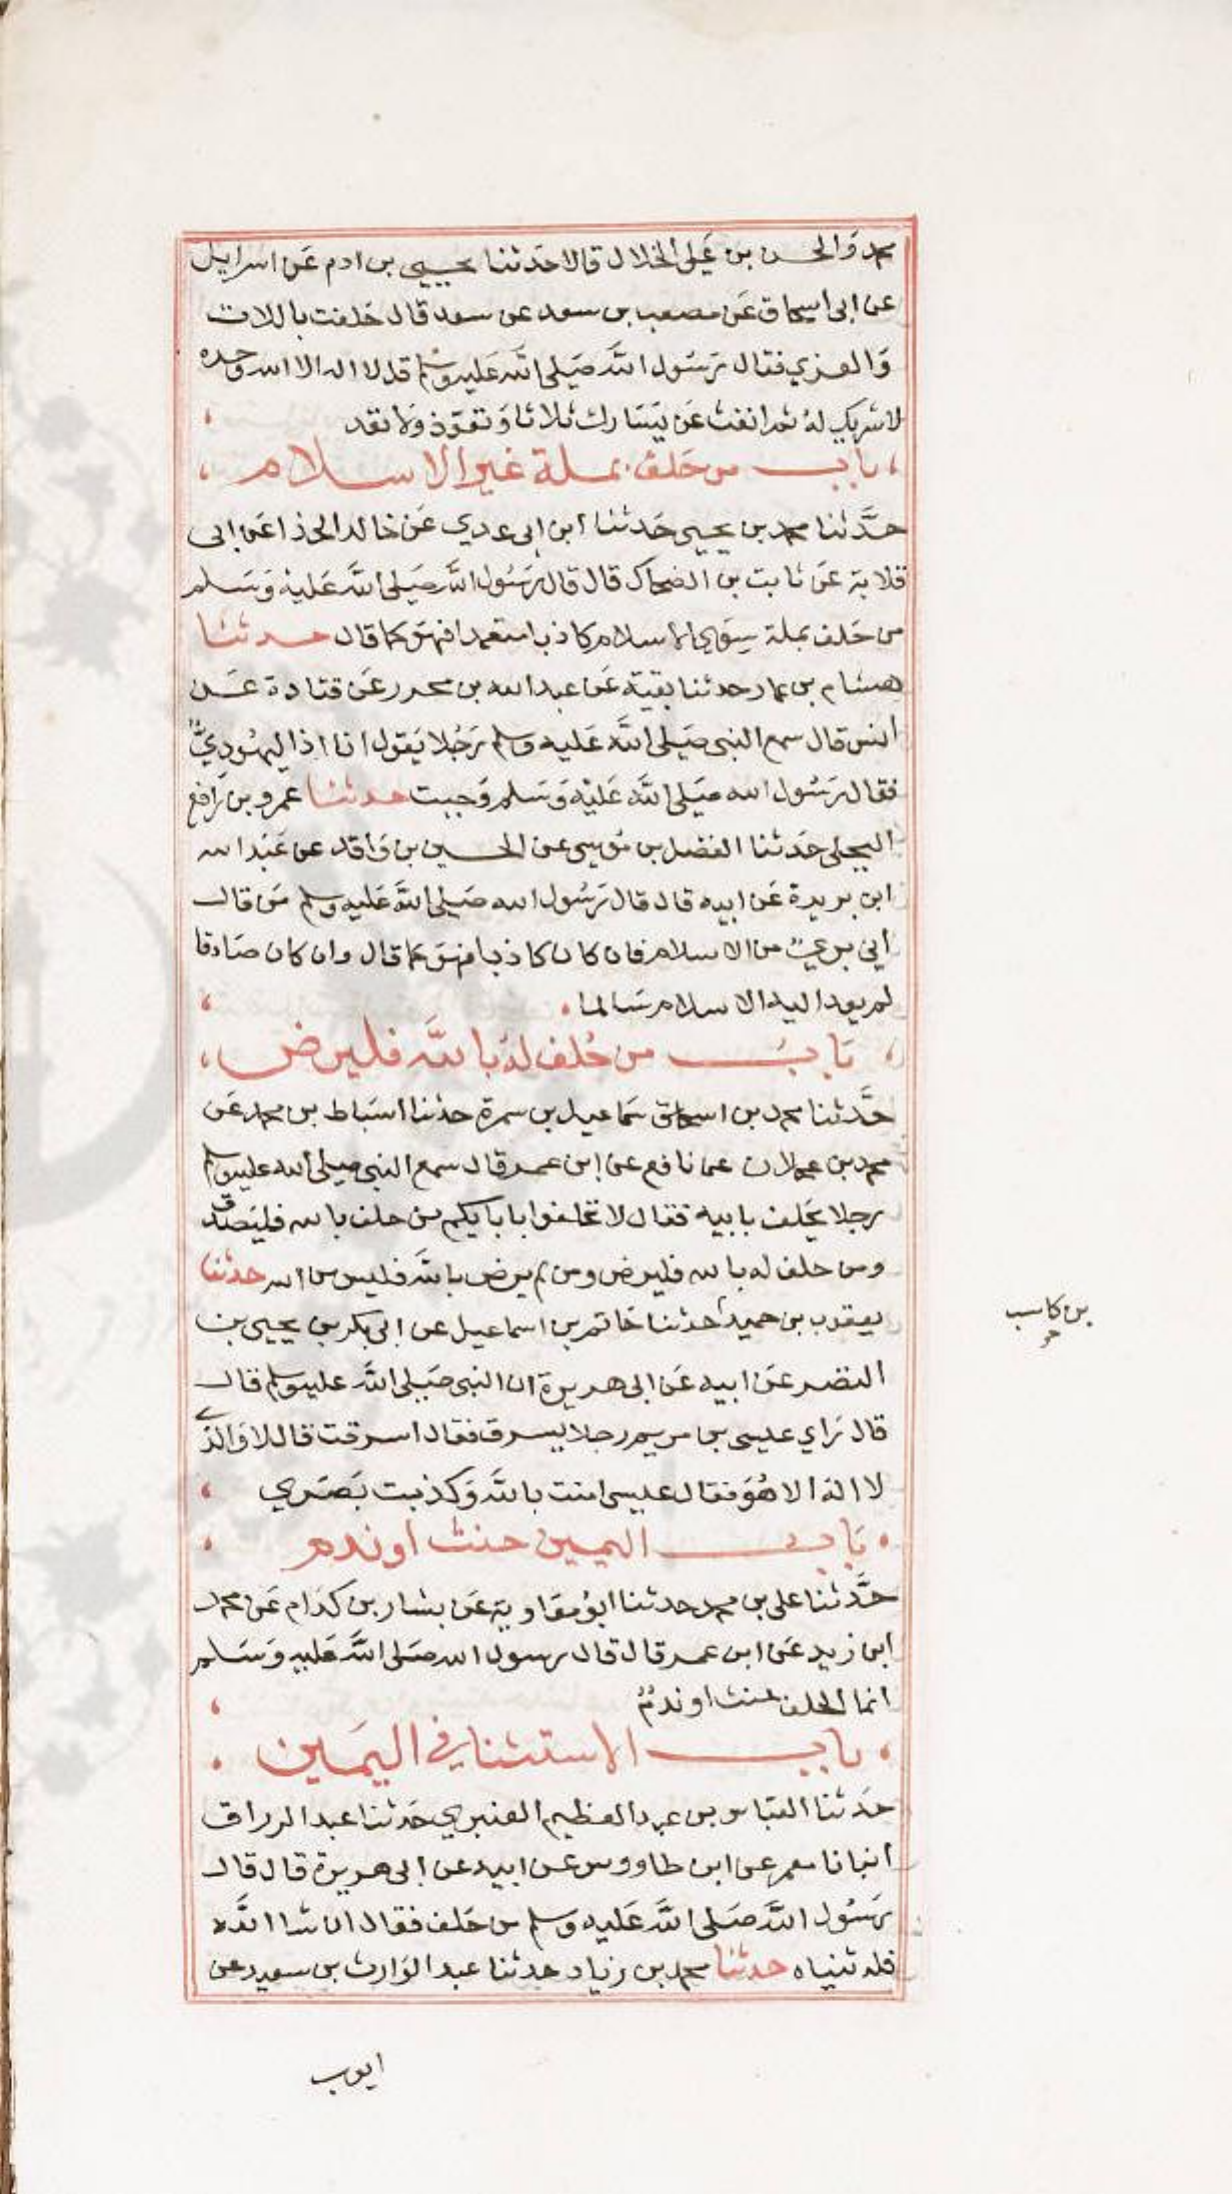 محمد وَالحسن بن عَلى الخلال قالا حَدثنا يحيى بن ادم عَن اسرايل
عن ابى اسحاق عَن مصعب بن سعد عن سعد قال حَلفت باللات
وَالعزي فقال رَسُول اللَّه صَلى اللَّه عَليه وسلم قل لا اله الا الله وحده
لا شريك لهُ ثم انفث عَن يَسَارك ثلاثا وَتعَوّذ وَلا تعد
باب من حَلف بملة غير الاسلام
حدَّثنا محمد بن يحيى حَدثنا ابن ابى عدي عَن خالد الحذا عَن ابى
قلابة عَن ثابت بن الضحاك قال قال رَسُول اللَّه صَلى اللَّه عَليْه وَسَلم
من حَلف بملة سِوَي الاسلام كاذبا متعمدا فهو كما قال حدثنا
هشام بن عمار حدثنا بقية عَن عبد الله بن محرر عَن قتادة عَن
انس قال سمع النبى صَلى اللَّه عَليه وسلم رَجُلا يَقول انا اذا ليهُوديٌّ
فقال رَسُول الله صَلى اللَّه عَليْه وَسَلم وَجبت حدثنا عمرو بن رَافع
البجلى حَدثنا الفضل بن مُوسى عن الحسين بن وَاقد عن عَبْد الله
ابن بريدة عَن ابيه قال قال رَسُول الله صَلى اللَّه عَليه وسلم مَن قال
اني بريٌ من الاسلام فان كان كاذبا فهو كما قال وان كان صَادقا
لم يعد اليه الاسلام سَالما
بَاب من حُلف لهُ باللَّه فليرض
حَدَّثنا محمد بن اسماعيل بن سمرة حدثنا اسَباط بن محمد عَن
محمد بن عجلان عن نافع عن ابن عمر قال سمع النبى صلى الله عليه وسلم
رجلا يحَلف بابيه فقال لا تحلفوا بابايكم من حلف بالله فليَصدق
ومن حلف له بالله فليرض ومن لم يرض باللَّه فليس من الله حدثنا
يعقوب بن حميد حدثنا حَاتم بن اسماعيل عن ابى بكر بن يحيى بن
النضر عَن ابيه عَن ابى هريرة ان النبى صَلى اللَّه عليه وسلم قال
قال رَاي عيسى بن مريم رجلا يسرق فقال اسرقت قال لا وَالذي
لا الهَ الا هُوَ فقال عيسى امنت باللَّه وَكذبت بَصَري
بَاب اليمين حنث اوندم
حدَّثنا على بن محمد حدثنا ابوُ معَاوية عَن بشار بن كدَام عَن محمد
ابن زيد عَن ابن عمر قال قال رسول الله صَلى اللَّه عَليه وَسَلم
انما الحلف حنث اوندمٌ
باب الاستثنا في اليمَين
حدَثنا العبَاس بن عبد العظيم العنبري حَدثنا عبد الرزاق
انبانا معمر عن ابن طاووس عن ابيه عن ابى هريرة قال قال
رَسُول اللَّه صَلى اللَّه عَليه وسلم من حَلف فقال ان شا اللَّه
فله ثنياه حدثنا محمد بن زياد حدثنا عبد الوَارث بن سعيد عن
بن كاسب
ايوب